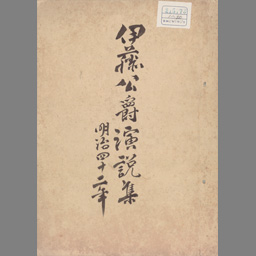 伊藤公爵演説集
明治四十二年